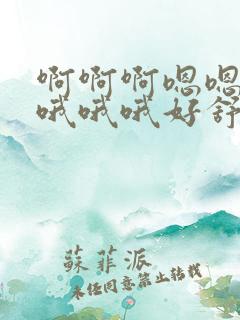 啊啊啊嗯嗯
哦哦哦好舒
蘇菲派
未经同意禁止转载